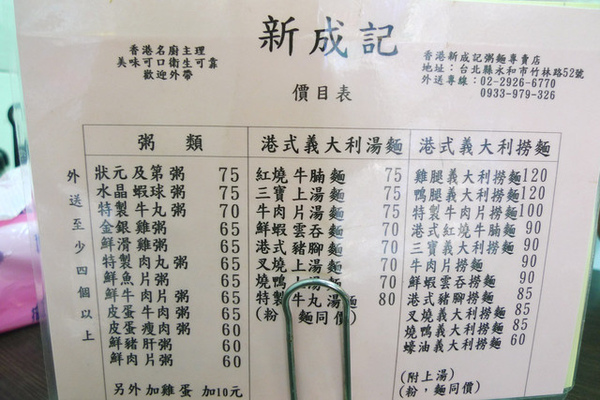 新成記
香港名廚主理
美味可口衛生可靠
歡迎外帶
香港新成記粥麵專賣店
地址：台北縣永和市竹林路52號
外送專線：02-2926-6770
0933-979-326
價目表
外送至少四個以上
粥類
狀元及第粥 75
水晶蝦球粥 75
特製牛丸粥 70
金銀雞粥 65
鮮滑雞粥 65
特製肉丸粥 65
鮮魚片粥 65
鮮牛肉片粥 65
皮蛋牛肉粥 65
皮蛋瘦肉粥 60
鮮豬肝粥 60
鮮肉片粥 60
另外加雞蛋 加10元
港式義大利湯麵
紅燒牛腩麵 75
三寶上湯麵 75
牛肉片湯麵 75
鮮蝦雲吞麵 70
港式豬腳麵 70
叉燒上湯麵 70
燒鴨 麵 70
特製牛丸湯麵 80
(粉 麵同價)
港式義大利撈麵
雞腿義大利撈麵120
鴨腿義大利撈麵120
特製牛肉片撈麵100
港式紅燒牛腩麵 90
三寶義大利撈麵 90
牛肉片撈麵 90
鮮蝦雲吞撈麵 90
港式豬腳撈麵 85
叉燒義大利撈麵 85
燒鴨義大利撈麵 85
蠔油義大利撈麵 60
(附上湯)
(粉，麵同價)